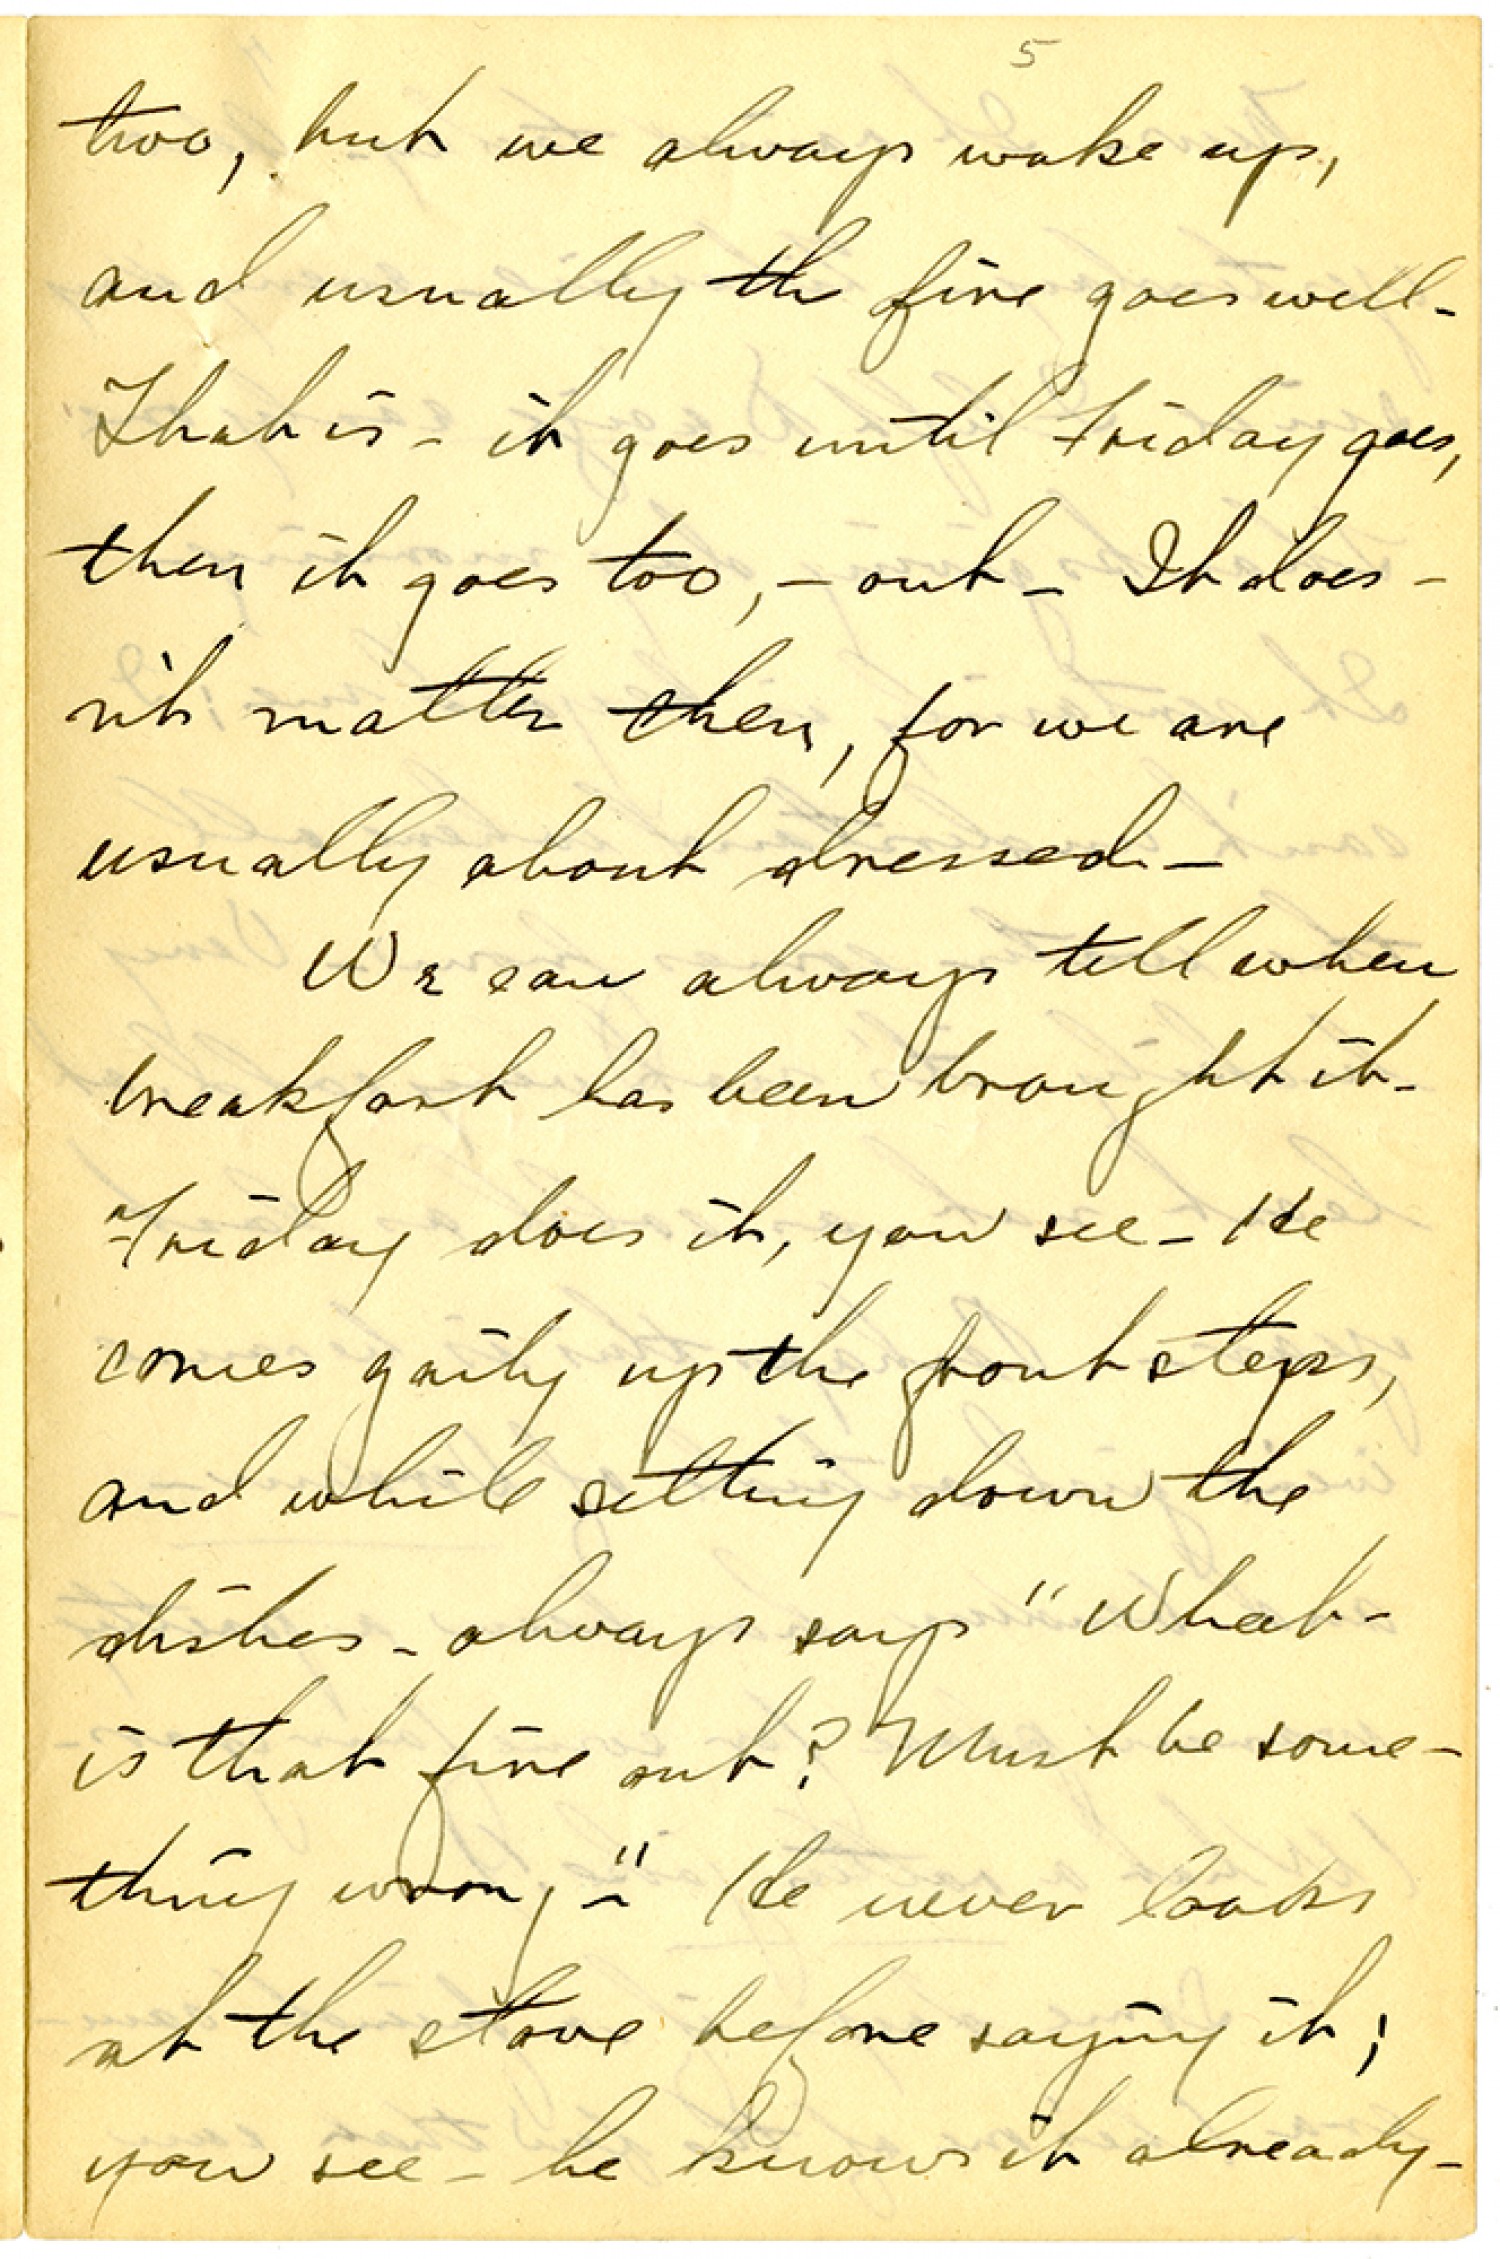 5
two, but we always wake up,
and usually the fire goes well -
That is - it goes until Friday goes,
then it goes too, - out - It does -
n't matter then, for we are
usually about dressed -
We can always tell when
breakfast has been brought it -
Friday does it, you see - He
comes gaily up the front steps,
and while setting down the
dishes - always says "What -
is that fire out? Must be some -
thing wrong -" He never looks
at the stove before saying it;
you see - he knows it already -